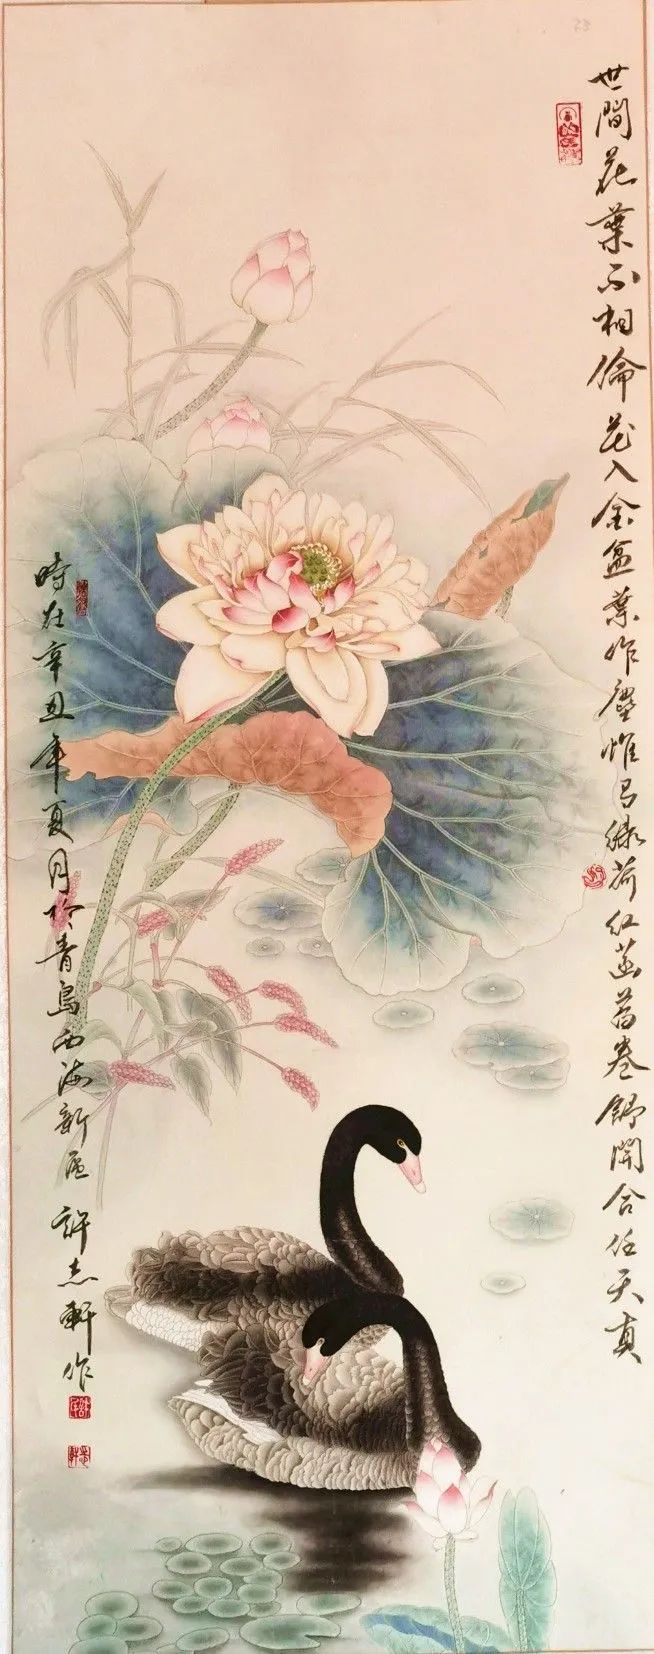 世間花葉不相倫花入金盆葉作塵惟有綠荷紅菡萏卷舒開合任天真
時在辛丑年夏月於青島西海新區許志軒作
23